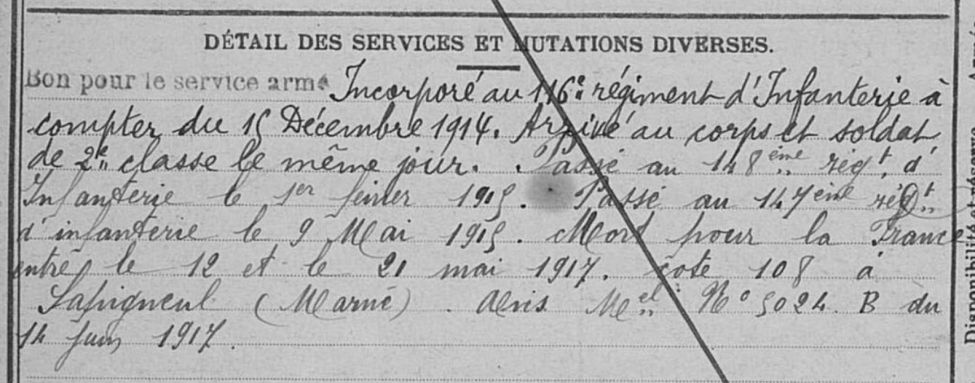 DÉTAIL DES SERVICES ET MUTATIONS DIVERSES.
Bon pour le service armé Incorporé au 116e régiment d'Infanterie à
compter du 15 Décembre 1914. Arrivé au corps et soldat
de 2e classe le même jour. Passé au 148ème régt. d'
Infanterie le 1er février 1915. Passé au 147ème régt
d'infanterie le 9 Mai 1915. Mort pour la France
entre le 12 et le 21 mai 1917. cote 108 à
Sapigneul (Marne). Avis Mel No 5024. B du
14 Juin 1917.